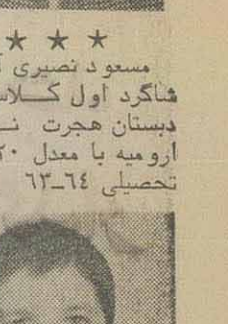 ★ ★ ★
مسعود نصیری
شاگرد اول کلاس
دبستان هجرت
ارومیه با معدل ۲۰
تحصیلی ۶۴ـ۶۳